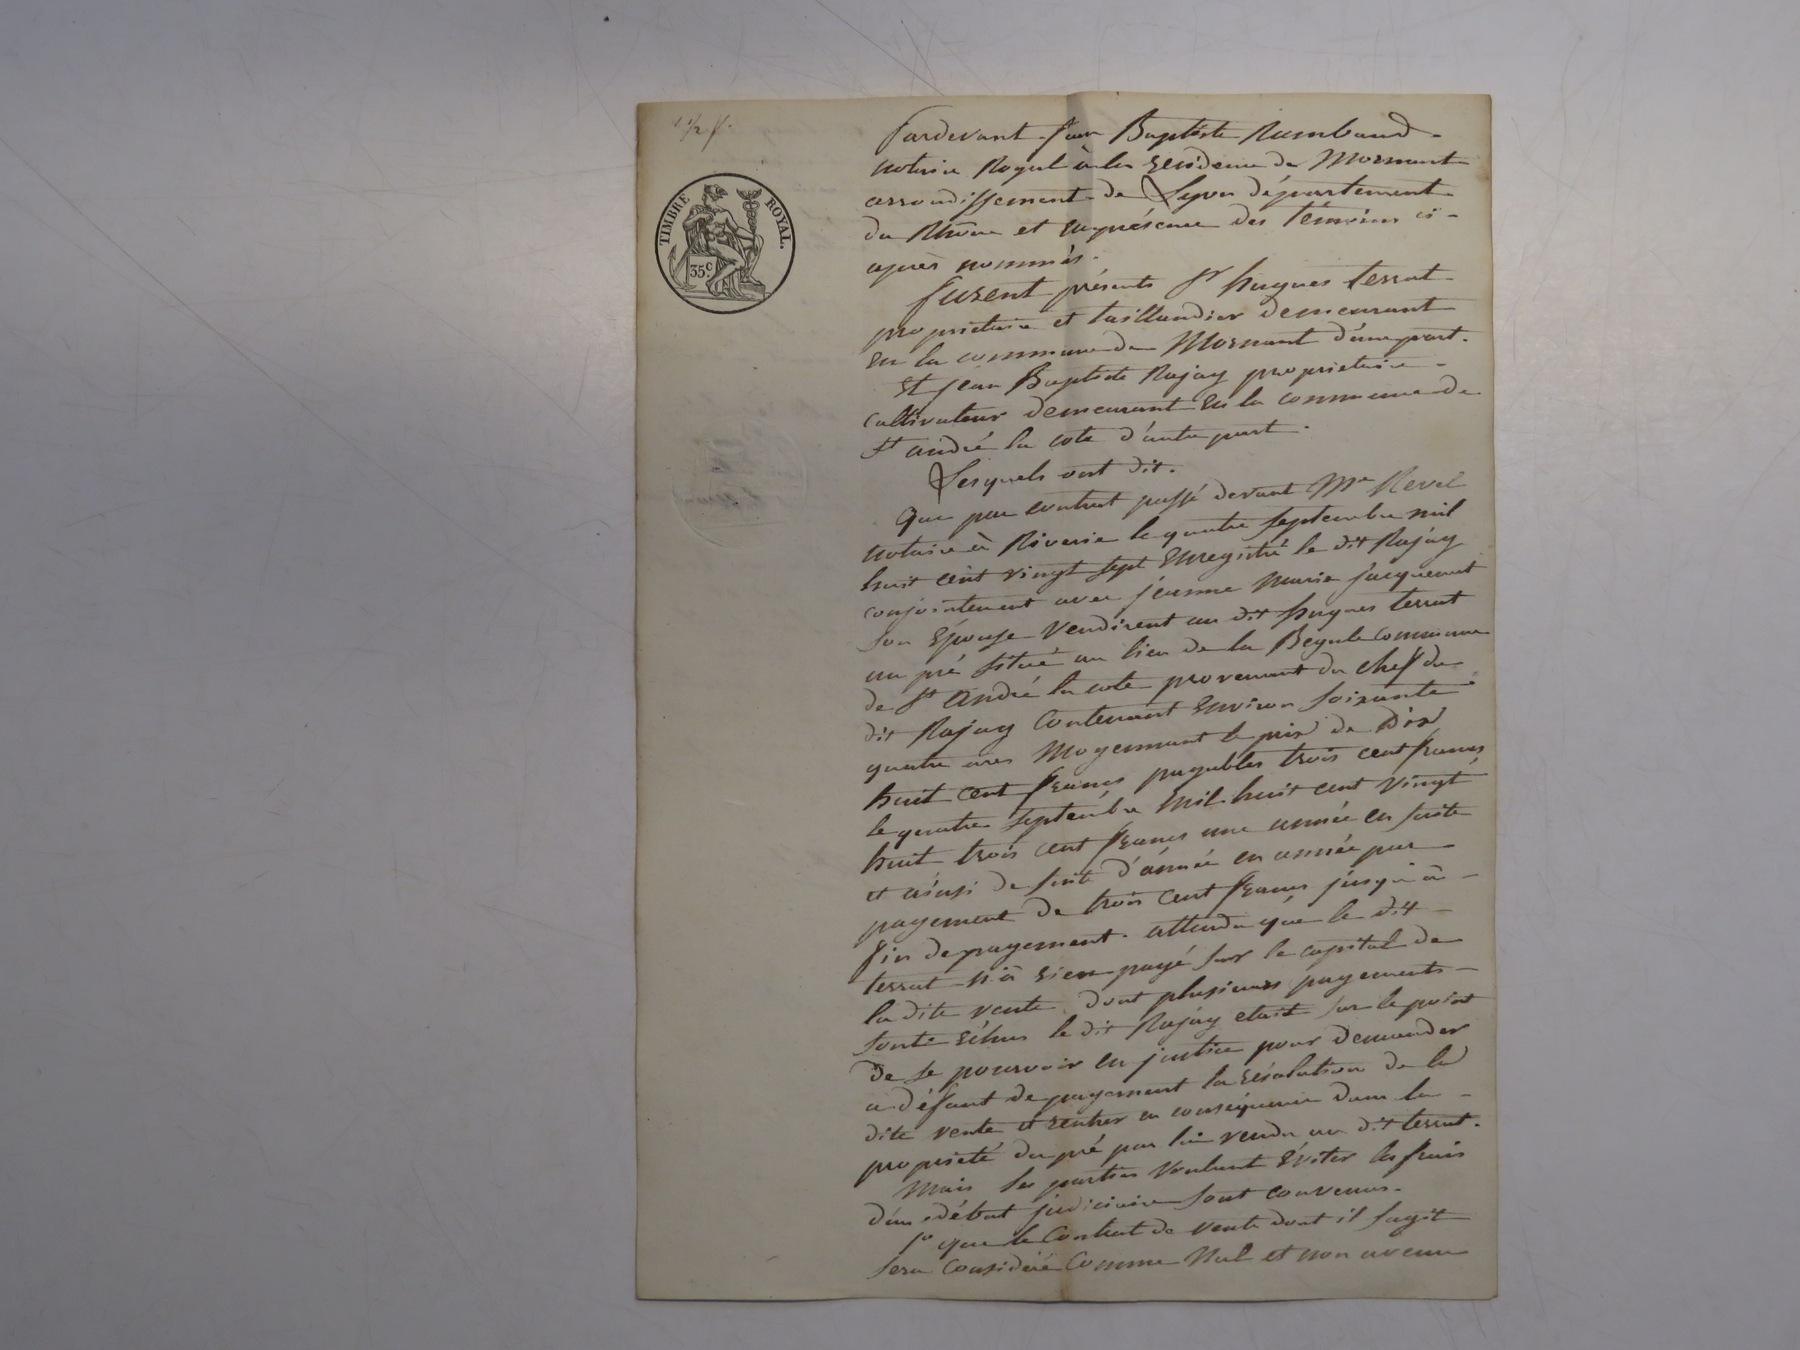 1 1/2 f.
TIMBRE ROYAL.
35 c.
Pardevant Jean Baptiste Rambaud
notaire Royal à la residence de Mornant
arrondissement de Lyon département
du Rhône et en présence des témoins ci-
après nommés.
furent présents Sr hugues terrat
propriétaire et taillandier demeurant
en la commune de Mornant d'une part.
Et jean Baptiste Rajay propriétaire
cultivateur demeurant en la commune de
St andré la cote d'autre part.
Lesquels ont dit.
Que par contrat passé devant Me Revel
notaire à Riverie le quatre septembre mil
huit cent vingt sept enregistré le dit Rajay
conjointement avec jeanne Marie jacquemet
son épouse vendirent au dit hugues terrat
un pré situé au lieu de la Begule commune
de St andré la cote provenant du chef du
dit Rajay contenant environ soixante
quatre ares moyennant le prix de dix
huit cent francs payables trois cent francs
le quatre septembre mil huit cent vingt
huit trois cent francs une année en suite
et ainsi de suite d'année en année par
payement de trois cent francs jusqu'à
fin de payement. attendu que le dit
terrat n'a rien payé sur le capital de
la dite vente dont plusieurs payements
sont échus le dit Rajay etait sur le point
de se pourvoir en justice pour demander
a défaut de payement la résolution de la
dite vente et rentrer en conséquence dans la
propriété du pré par lui vendu au dit terrat.
Mais les parties voulant éviter les frais
d'un débat judiciaire sont convenus.
1o que le Contrat de vente dont il s'agit
sera considéré comme nul et non avenu